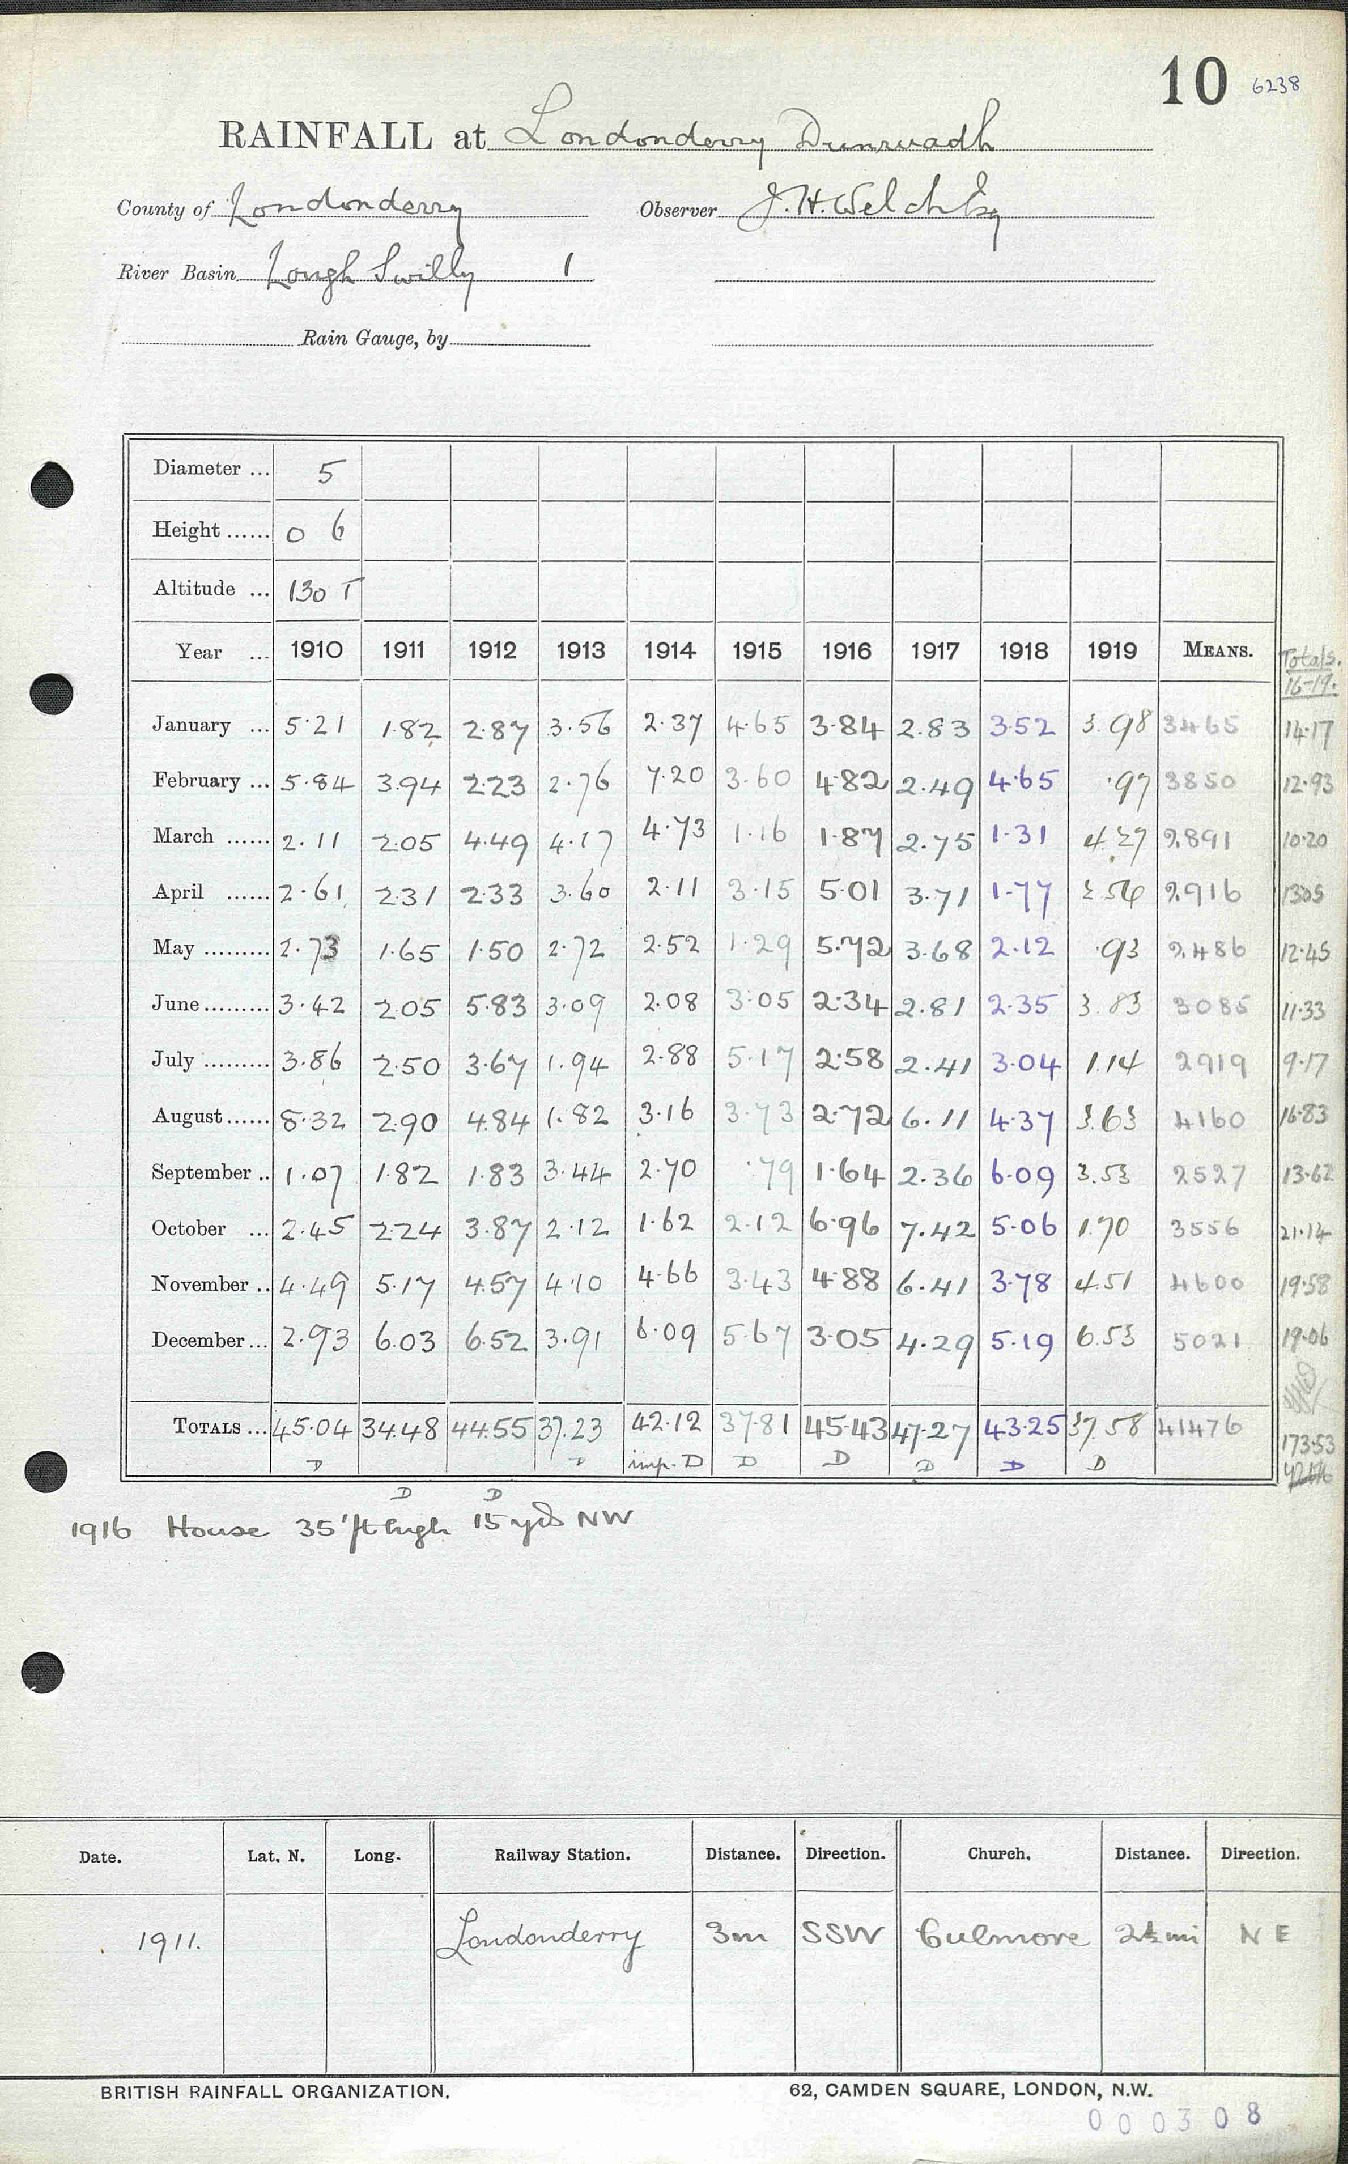 10 6238
RAINFALL at Londonderry Dunruadh
County of Londonderry Observer J. H. Welch Esq
River Basin Lough Swilly 1
Rain Gauge, by
Diameter ... 5
Height ...... 0 6
Altitude ... 130 T
Year ... 1910 1911 1912 1913 1914 1915 1916 1917 1918 1919 MEANS. Totals. 16-19.
January ... 5.21 1.82 2.87 3.56 2.37 4.65 3.84 2.83 3.52 3.98 3465 14.17
February ... 5.84 3.94 2.23 2.76 7.20 3.60 4.82 2.49 4.65 .97 3850 12.93
March ...... 2.11 2.05 4.49 4.17 4.73 1.16 1.87 2.75 1.31 4.27 2.891 10.20
April ...... 2.61 2.31 2.33 3.60 2.11 3.15 5.01 3.71 1.77 2.56 2.916 1305
May ......... 2.73 1.65 1.50 2.72 2.52 1.29 5.72 3.68 2.12 .93 2.486 12.45
June ......... 3.42 2.05 5.83 3.09 2.08 3.05 2.34 2.81 2.35 3.83 3085 11.33
July ......... 3.86 2.50 3.67 1.94 2.88 5.17 2.58 2.41 3.04 1.14 2919 9.17
August ...... 8.32 2.90 4.84 1.82 3.16 3.73 2.72 6.11 4.37 3.63 4160 16.83
September .. 1.07 1.82 1.83 3.44 2.70 .79 1.64 2.36 6.09 3.53 2527 13.62
October ... 2.45 2.24 3.87 2.12 1.62 2.12 6.96 7.42 5.06 1.70 3556 21.14
November .. 4.49 5.17 4.57 4.10 4.66 3.43 4.88 6.41 3.78 4.51 4600 19.58
December ... 2.93 6.03 6.52 3.91 6.09 5.67 3.05 4.29 5.19 6.53 5021 19.06
TOTALS ... 45.04 34.48 44.55 37.23 42.12 37.81 45.43 47.27 43.25 37.58 41476 173.53
D D imp. D D D D D D
D D
1916 House 35 ft high 15 yds NW
Date. Lat. N. Long. Railway Station. Distance. Direction. Church. Distance. Direction.
1911. Londonderry 3m SSW Culmore 2½ mi N E
BRITISH RAINFALL ORGANIZATION. 62, CAMDEN SQUARE, LONDON, N.W.
000308